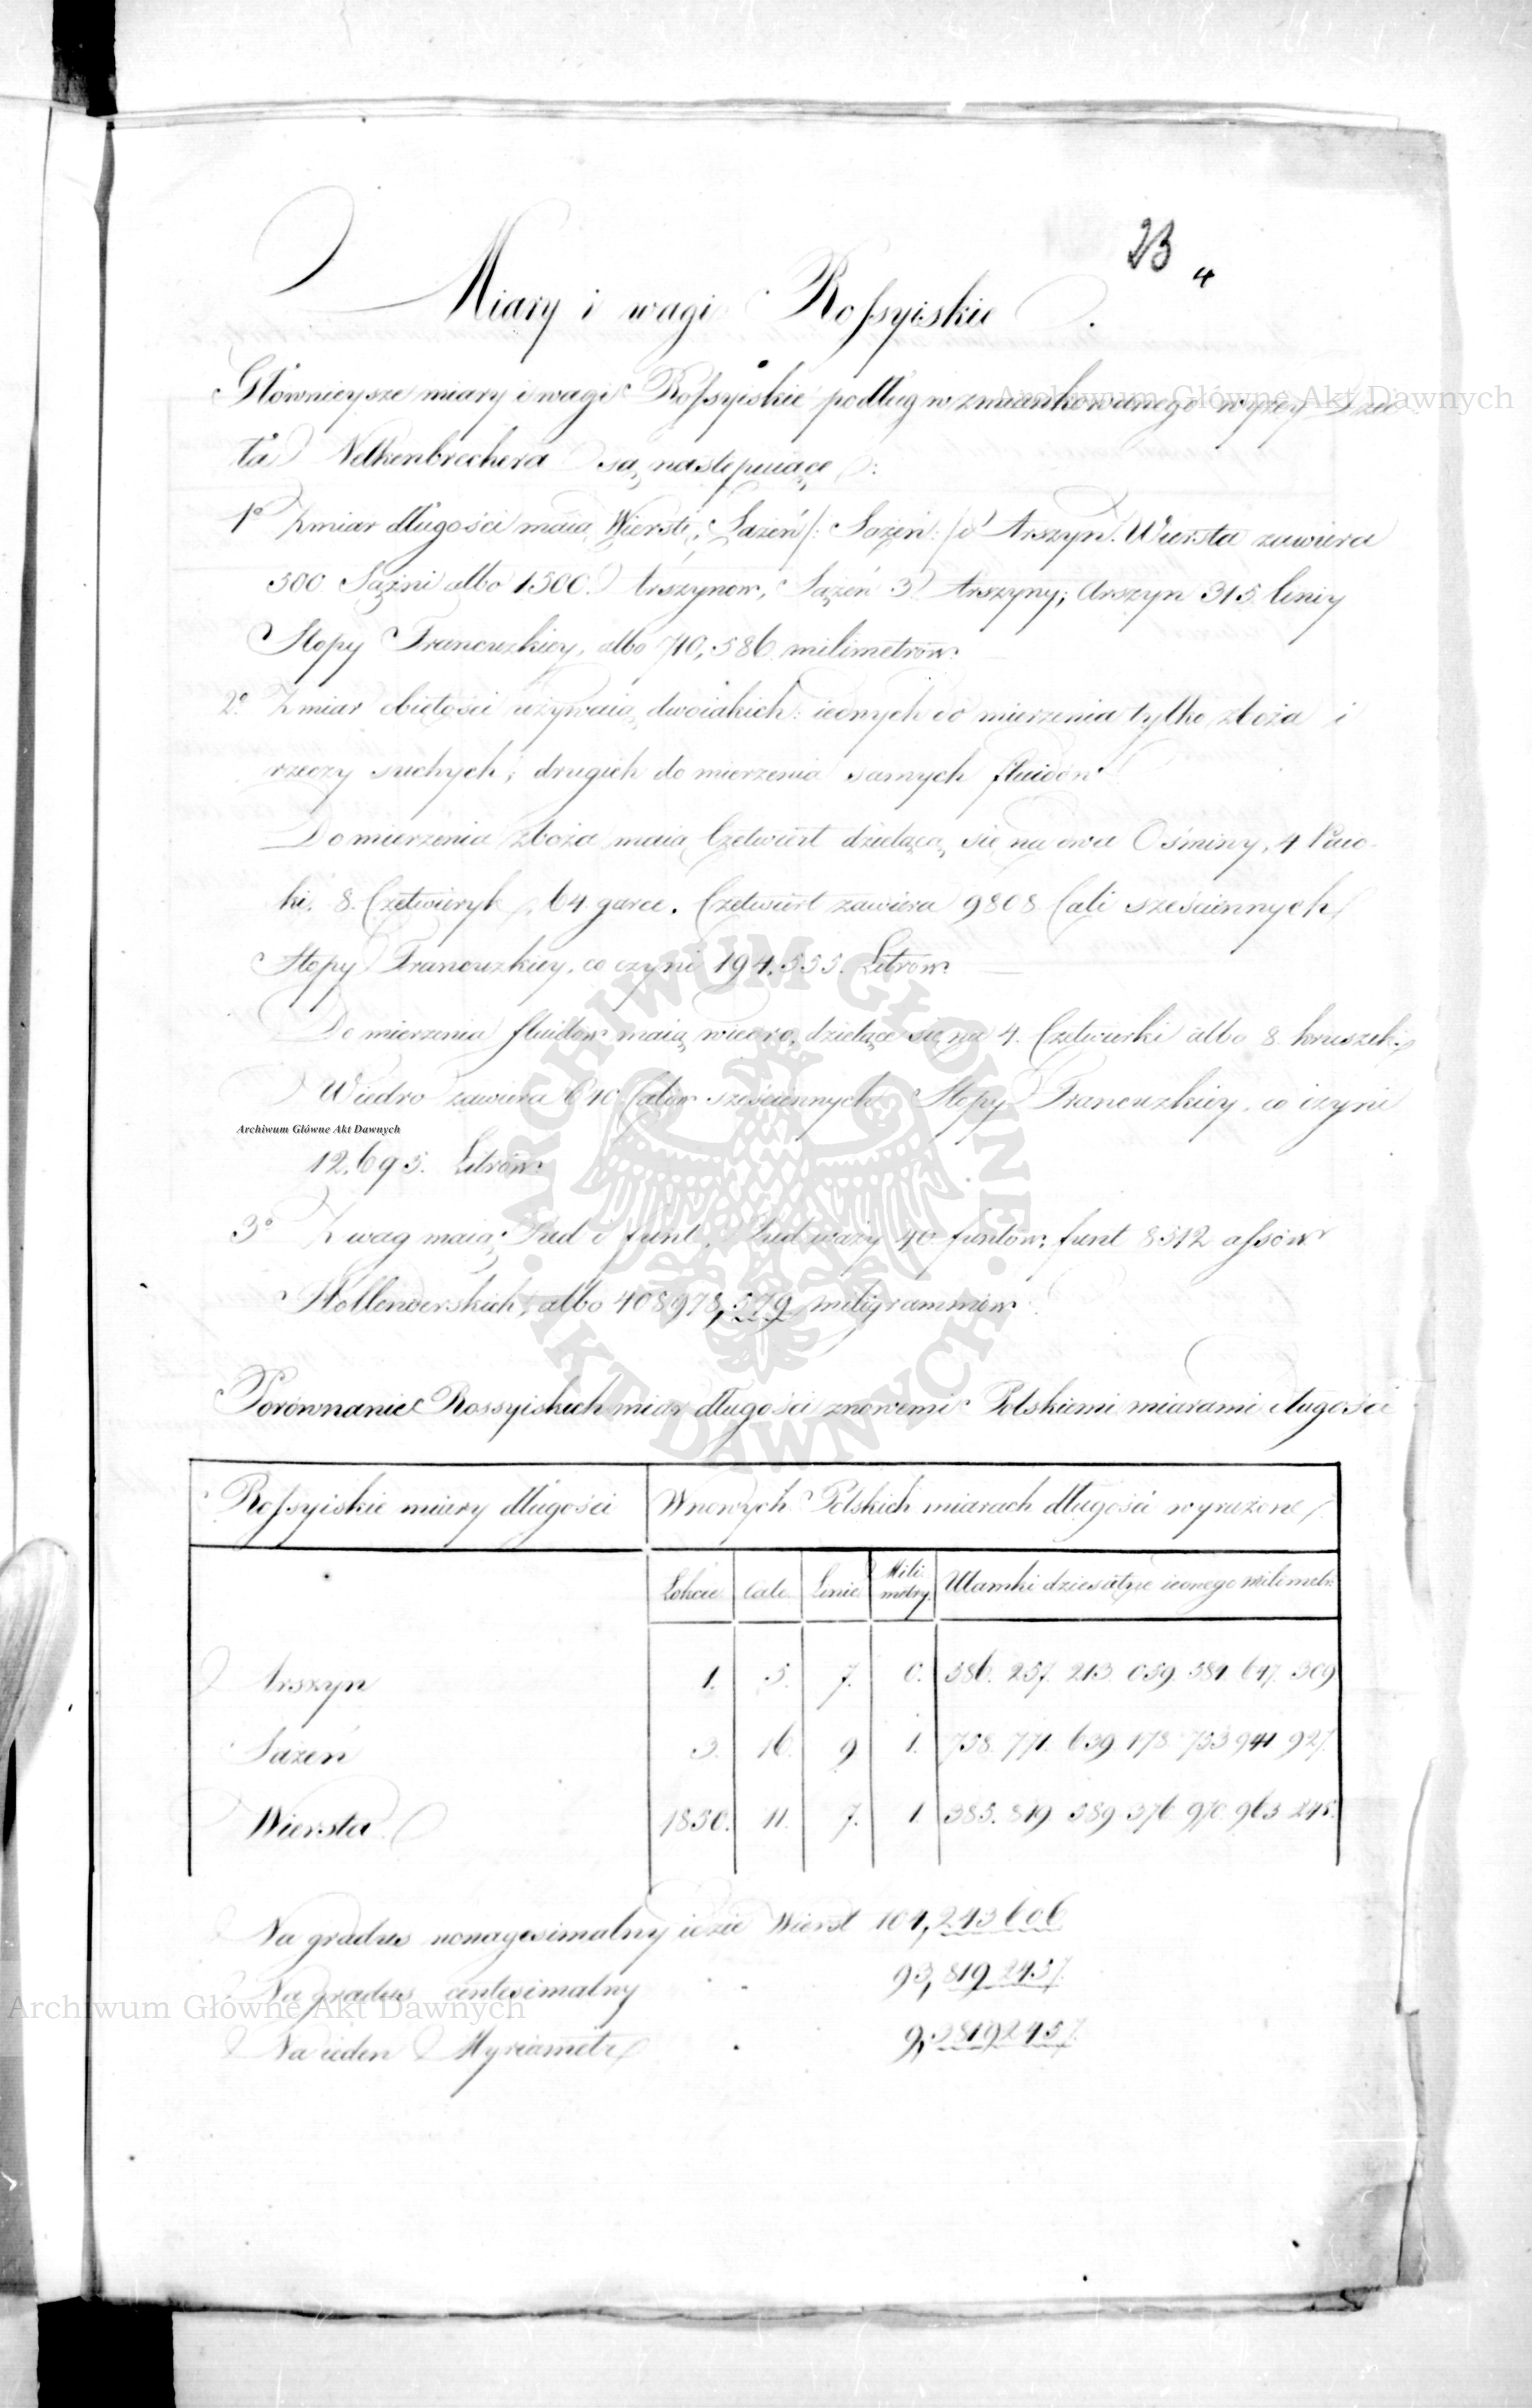 23
4
Miary i wagi Rossyiskie.
Głównieysze miary i wagi Rossyiskie podług wzmiankowanego wyżey Dzie-
ła Nelkenbrechera są następuiące:
1° Z miar długości maią Wiersti, Sażeń /: Sążeń :/ i Arszyn. Wiersta zawiera
500 Sążni albo 1500. Arszynow, Sążeń 3. Arszyny; Arszyn 315 liniy
Stopy Francuzkiey, albo 710,586 milimetrów.
2° Z miar obiętości używaią dwoiakich: iednych do mierzenia tylko zboża i
rzeczy suchych; drugich do mierzenia samych fluidów.
Do mierzenia zboża maią Czetwiert dzielącą się na dwa Ośminy, 4 Paio-
ki, 8. Czetwieryk, 64 garce. Czetwiert zawiera 9808 Cali sześciennych
Stopy Francuzkiey, co czyni 194,555. Litrów.
Do mierzenia fluidów maią wiedro, dzielące się na 4. Czetwierki albo 8 kruszek.
Wiedro zawiera 640 Calów sześciennych Stopy Francuzkiey, co czyni
12,695. Litrów.
3° Z wag maią Pud i funt. Pud waży 40 funtów; funt 8512 assów
Hollenderskich, albo 408978,579 miligrammów.
Porównanie Rossyiskich miar długości z nowemi Polskiemi miarami długości
Rossyiskie miary długości W nowych Polskich miarach długości wyrażone
Łokcie Cale. Linie Milimetry. Ułamki dziesiętne iednego milimetr:
Arszyn 1. 5. 7. 0. 586. 257. 213. 059. 581. 647. 309
Sażeń 3. 16. 9 1. 758. 771. 639. 178. 753 941 927.
Wiersta 1850. 11. 7. 1. 385. 819. 589 376. 970. 963 245.
Na gradus nonagesimalny idzie Wierst 104,243606
Na gradus centesimalny 93,8192457.
Na ieden Myriametr 9,38192457.
Archiwum Główne Akt Dawnych
Archiwum Główne Akt Dawnych
Archiwum Główne Akt Dawnych
ARCHIWUM GŁÓWNE AKT DAWNYCH